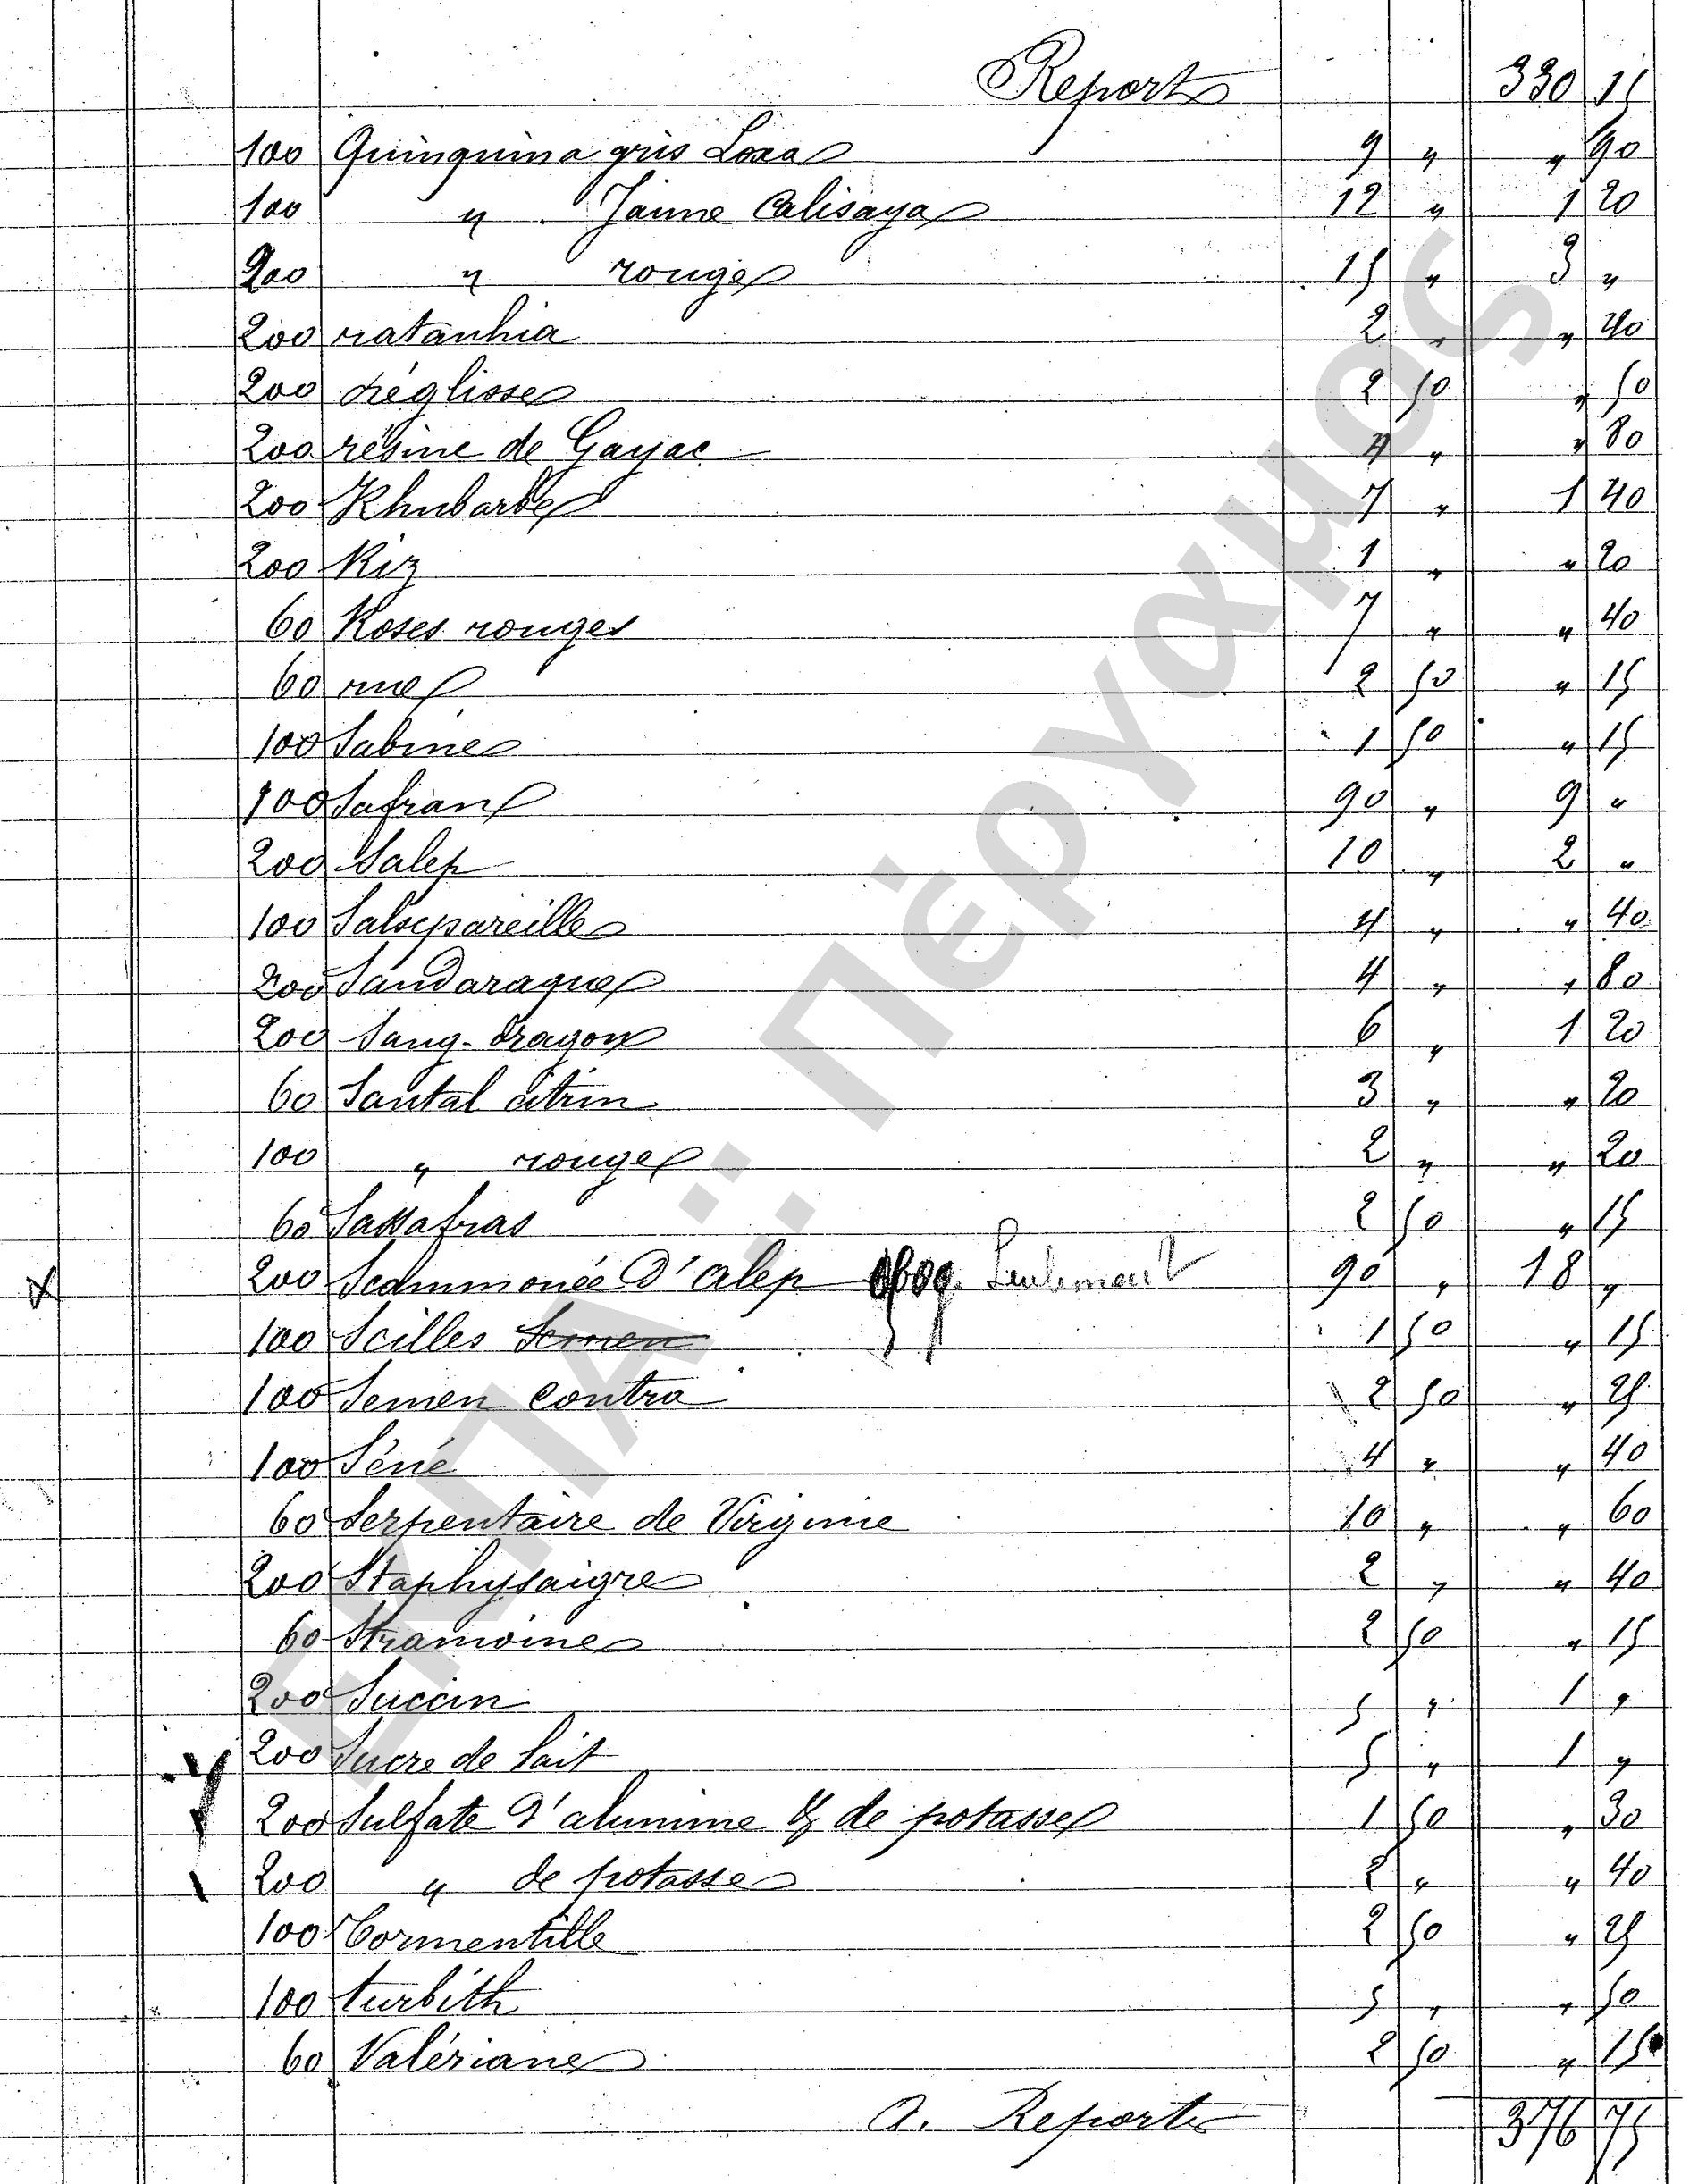 Report 330 15
100 Quinquina gris Loxa 9 " " 90
100 " Jaune Calisaya 12 " 1 20
200 " rouge 15 " 3 "
200 ratanhia 2 " " 40
200 réglisse 2 50 " 50
200 résine de Gayac 4 " " 80
200 Rhubarbe 7 " 1 40
200 Riz 1 " " 20
60 Roses rouges 7 " " 40
60 rue 2 50 " 15
100 Sabine 1 50 " 15
100 Safran 90 " 9 "
200 Salep 10 " 2 "
100 Salsepareille 4 " " 40
200 Sandaraque 4 " " 80
200 Sang-dragon 6 " 1 20
60 Santal citrin 3 " " 20
100 " rouge 2 " " 20
60 Sassafras 2 50 " 15
x 200 Scammonée d'alep Seulement 90 " 18 "
100 Scilles Semen 1 50 " 15
100 Semen contra 2 50 " 25
100 Séné 4 " " 40
60 Serpentaire de Virginie 10 " " 60
200 Staphysaigre 2 " " 40
60 Stramoine 2 50 " 15
200 Succin 5 " 1 "
200 Sucre de lait 5 " 1 "
200 Sulfate d'alumine & de potasse 1 50 " 30
200 " de potasse 2 " " 40
100 Tormentille 2 50 " 25
100 turbith 5 " " 50
60 Valériane 2 50 " 15
A. Reporter 376 75
ΕΚΠΑ: Πέργαμος